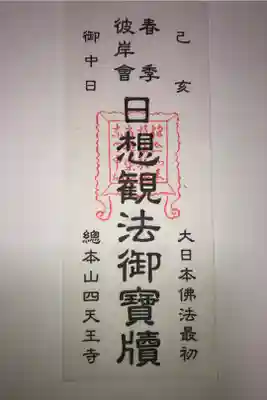 己亥
春季
彼岸會
御中日
日想観法御寶牘
大日本佛法最初
總本山四天王寺